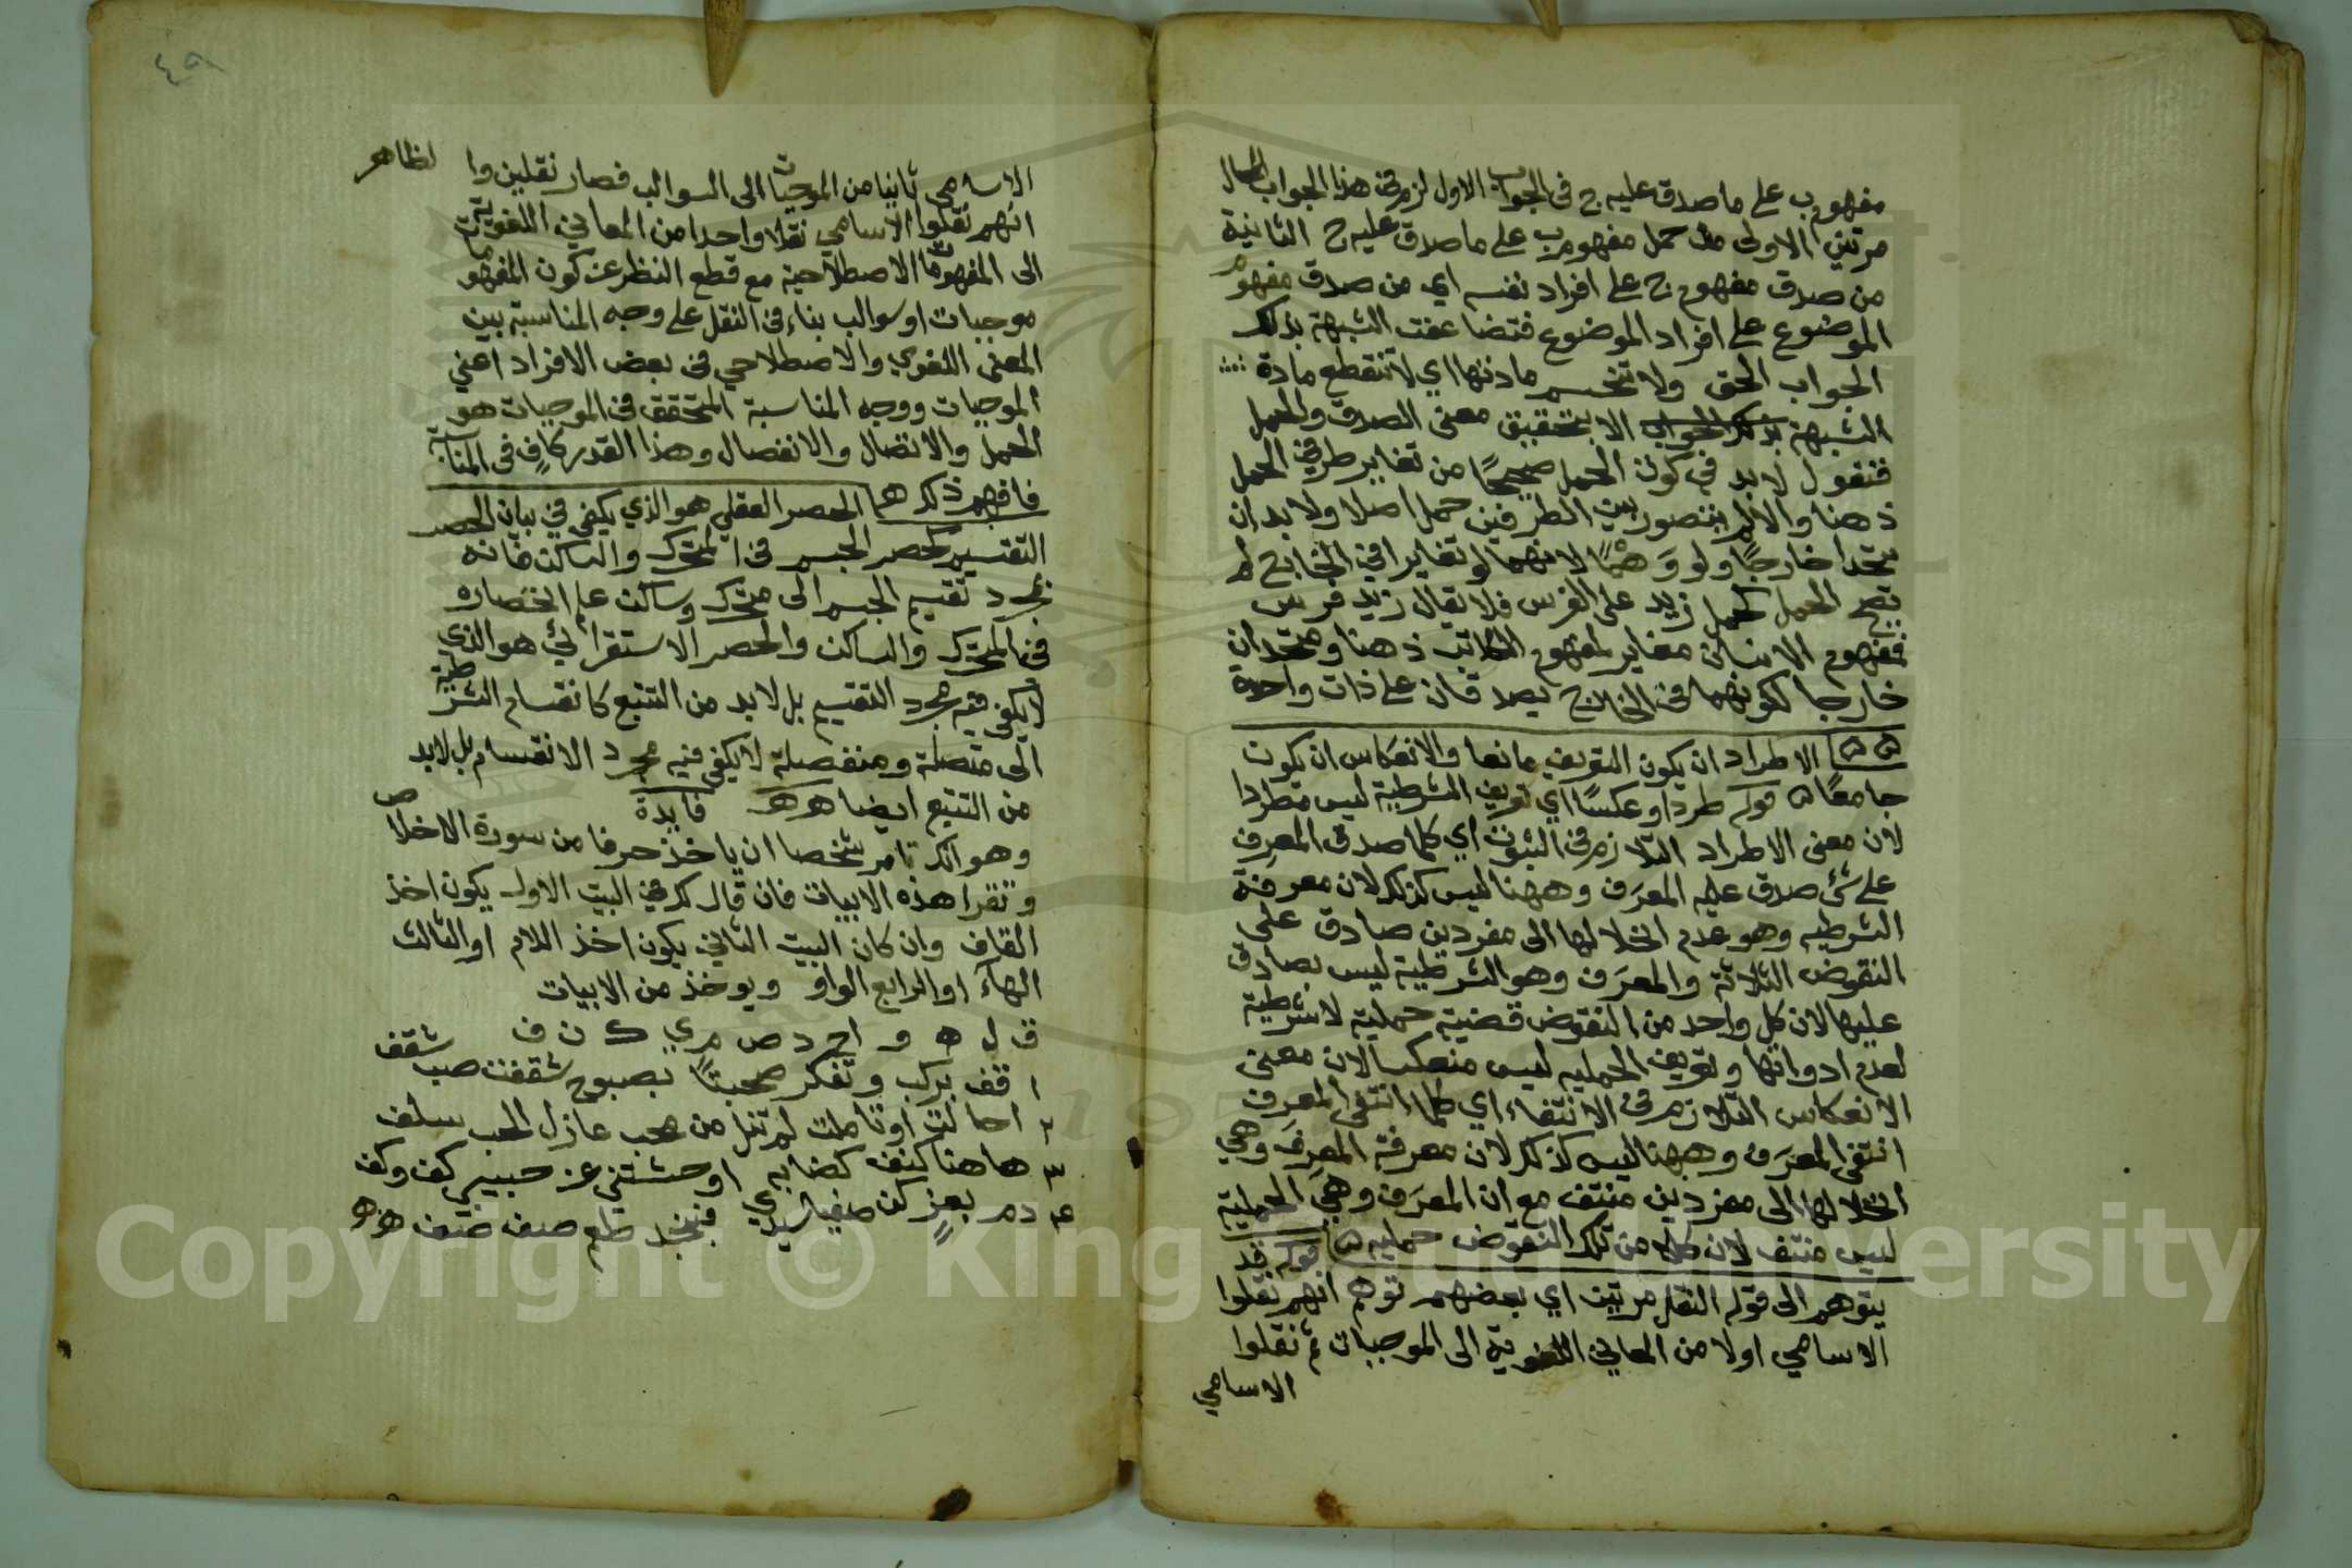 مفهوم ب على ما صدق عليه ج فى الجواب الاول لزم فى هذا الجواب المحال
مرتين الاولى من حمل مفهوم ب على ما صدق عليه ج الثانية
من صدق مفهوم ج على افراد نفسه اي من صدق مفهوم
الموضوع على افراد الموضوع فتضاعفت الشبهة بذلك
الجواب الحق ولا تنحسم مادتها اي لا تنقطع مادة
الشبهة بذلك الجواب الا بتحقيق معنى الصدق والحمل
فنقول لا بد في كون الحمل صحيحًا من تغاير طرفي الحمل
ذهنا والا لم يتصور بين الطرفين حمل اصلا ولا بد ان
يتحدا خارجًا ولو وَهْمًا لانهما لو تغايرا في الخارج لم
يصح الحمل كحمل زيد على الفرس فلا يقال زيد فرس
فمفهوم الانسان مغاير لمفهوم الكاتب ذهنا ومتحدان
خارجا لكونهما فى الخارج يصدقان على ذات واحدة
الاطراد ان يكون التعريف مانعا والانعكاس ان يكون
جامعًا ه قوله طردا وعكسًا اي تعريف الشرطية ليس مطردا
لان معنى الاطراد التلازم فى الثبوت اي كلما صدق المعرِف
على شئ صدق عليه المعرَف وههنا ليس كذلك لان معرفة
الشرطيه وهو عدم انحلالها الى مفردين صادق على
النقوض الثلاثة والمعرَف وهو الشرطية ليس بصادق
عليها لان كل واحد من النقوض قضية حملية لا شرطية
لعدم ادواتها وتعريف الحمليه ليس منعكسا لان معنى
الانعكاس التلازم فى الانتفاء اي كلما انتفى المعرِف
انتفى المعرَف وههنا ليس كذلك لان معرفة المعرِف وهي
انحلالها الى مفردين منتف مع ان المعرَف وهي الحملية
ليس منتف لان كله من تلك النقوض حمليه ه قوله قد
يتوهم الى قوله النقل مرتين اي بعضهم توهم انهم نقلوا
الاسامي اولا من المعاني اللغوية الى الموجبات ثم نقلوا
الاسامي
٤٩
الاسامى ثانيا من الموجبات الى السوالب فصار نقلين والظاهر
انهم نقلوا الاسامي نقلا واحدا من المعاني اللغوية
الى المفهومات الاصطلاحية مع قطع النظر عن كون المفهومات
موجبات او سوالب بناء فى النقل على وجه المناسبة بين
المعنى اللغوي والاصطلاحي فى بعض الافراد اعني
الموجبات ووجه المناسبة المتحقق فى الموجبات هو
الحمل والاتصال والانفصال وهذا القدر كافٍ فى المناسبة
فافهم ذلك ه الحصر العقلي هو الذي يكفي في بيان الحصر
التقسيم كحصر الجسم فى المتحرك والساكن فانه
بمجرد تقسيم الجسم الى متحرك وساكن علم انحصاره
فى المتحرك والساكن والحصر الاستقرائي هو الذي
لا يكفي فيه مجرد التقسيم بل لا بد من التتبع كانقسام الشرطية
الى متصلة ومنفصلة لا يكفي فيه مجرد الانقسام بل لابد
من التتبع ايضا فايدة
وهو انك تامر شخصا ان ياخذ حرفا من سورة الاخلاص
وتقرا هذه الابيات فان قال لك في البيت الاول يكون اخذ
القاف وان كان البيت الثاني يكون اخذ اللام او الثالث
الهاء او الرابع الواو ويوخذ من الابيات
ق ل ه و ا ح د ص م ي ك ن ف
١ قف بركب وتفكر بصبوح شقفت صب شقف
٢ او تاملت لم تنل من محب عاذل الحب سلف
٣ هاهنا كنف اوحشتني عن حبيبي كف وكف
٤ دم بعز كن